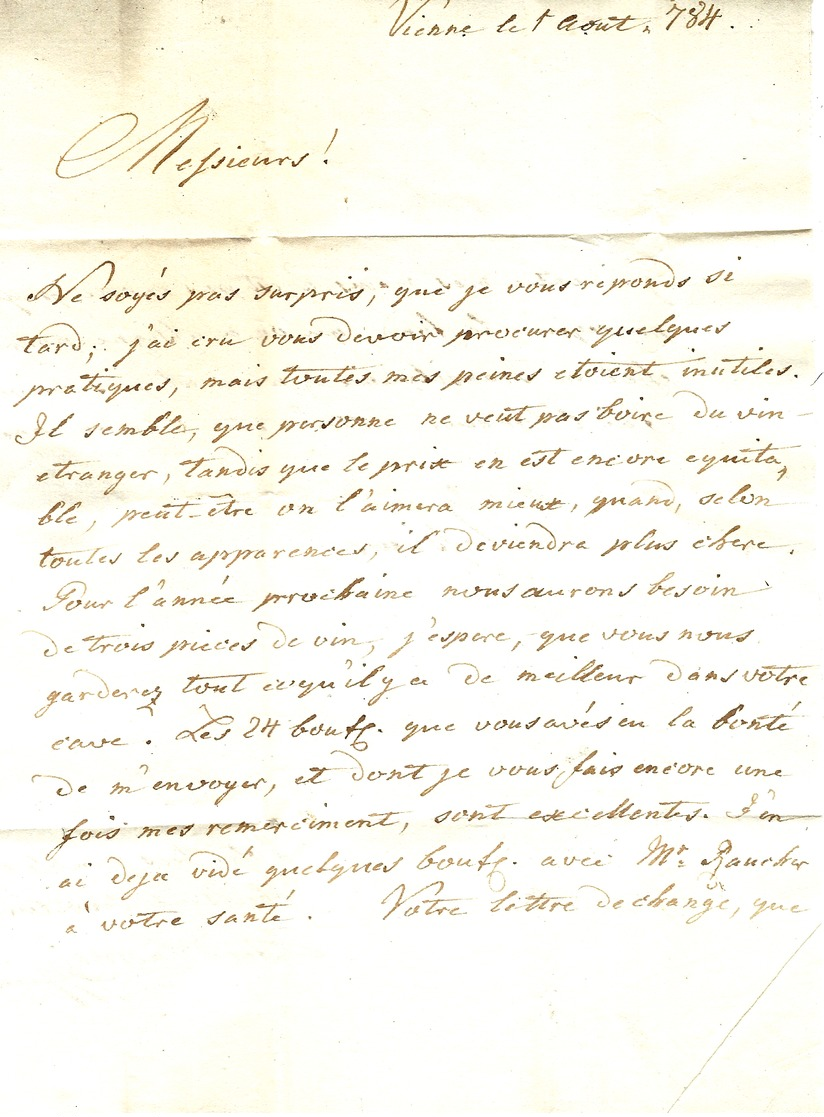 Vienne le 1 Aout. 784.
Messieurs!
Ne soyés pas surpris, que je vous reponds si
tard; j'ai cru vous devoir procurer quelques
pratiques, mais toutes mes peines etoient inutiles.
Il semble, que personne ne veut pas boire du vin
etranger, tandis que le prix en est encore equita„
ble, peut-être on l'aimera mieux, quand, selon
toutes les apparences, il deviendra plus chere.
Pour l'année prochaine nous aurons besoin
de trois pieces de vin, j'espere, que vous nous
garderez tout cequ'il y a de meilleur dans votre
cave. Les 24 bout. que vous avés eu la bonté
de m'envoyer, et dont je vous fais encore une
fois mes remerciment, sont excellentes. J'en
ai deja vidé quelques bout. avec Mr. Raucher
à votre santé. Votre lettre de change, que